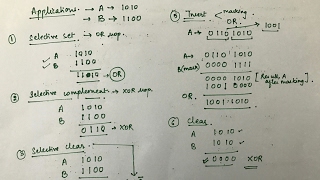 Applications → A → 1010
→ B → 1100
① Selective set → OR μop.
A 1010
B 1100
1110 → OR
② Selective complement → XOR μop
A 1010
B 1100
0110 → XOR
③ Selective clear
A 1010
B 1100
⑤ Insert → masking
OR → 1001
A → 0110 1010
A → 0110 1010
B(mask) 0000 1111
0000 1010 [Result A after masking]
1001 0000
OR. 1001 1010
⑥ Clear
A 1010
B 1010
0000 XOR